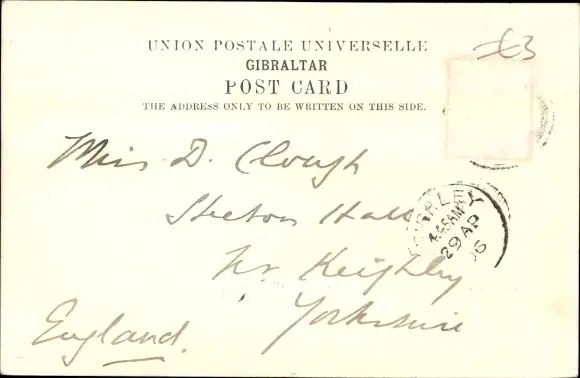 £3
UNION POSTALE UNIVERSELLE
GIBRALTAR
POST CARD
THE ADDRESS ONLY TO BE WRITTEN ON THIS SIDE.
Miss D. Clough
Steeton Hall
Nr. Keighley
Yorkshire
England.
KEIGHLEY
4.45AM
29 AP
06